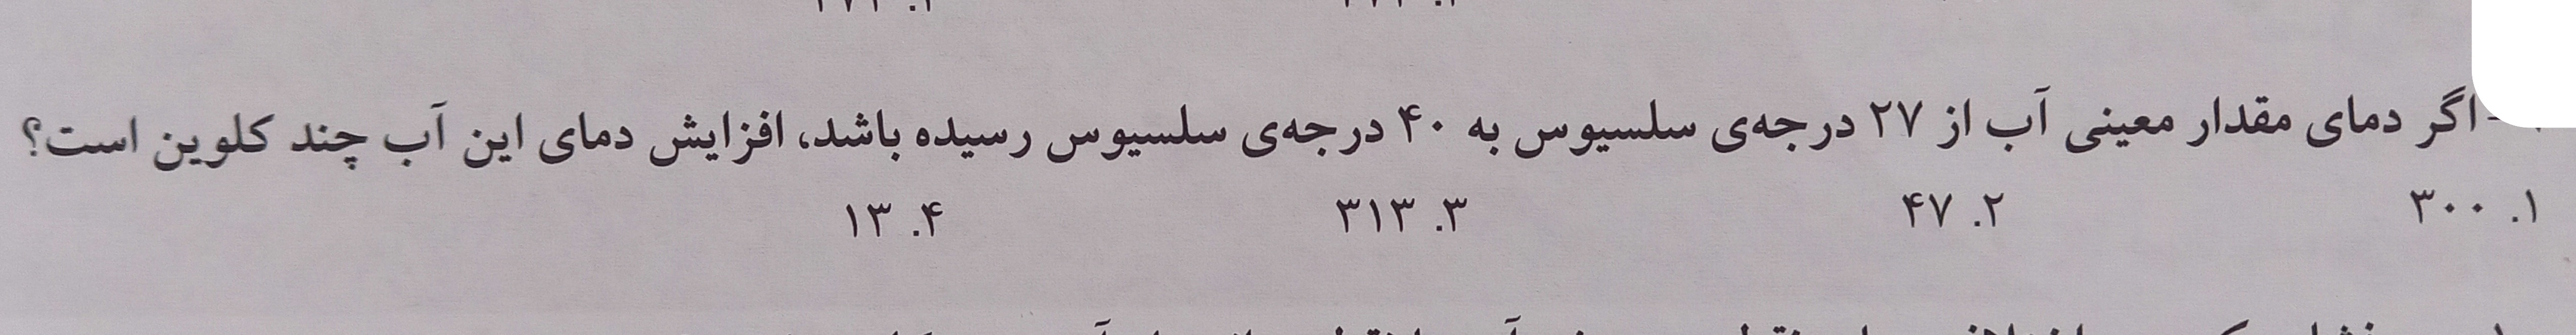 -اگر دمای مقدار معینی آب از ۲۷ درجه‌ی سلسیوس به ۴۰ درجه‌ی سلسیوس رسیده باشد، افزایش دمای این آب چند کلوین است؟
۱. ۳۰۰ ۲. ۴۷ ۳. ۳۱۳ ۴. ۱۳